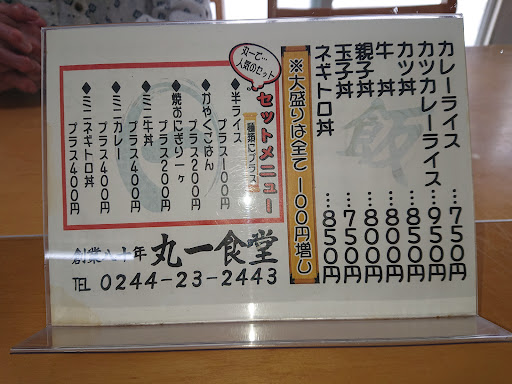 カレーライス…７５０円
カツカレーライス…９５０円
カツ丼…８５０円
牛丼…８００円
親子丼…８００円
玉子丼…７５０円
ネギトロ丼…８５０円
※大盛りは全て１００円増し
飯
丸一で…
人気のセット
セットメニュー
麺類にプラス
◆半ライス
プラス１００円
◆かやくごはん
プラス２００円
◆焼おにぎり一ヶ
プラス２００円
◆ミニ牛丼
プラス４００円
◆ミニカレー
プラス４００円
◆ミニネギトロ丼
プラス４００円
創業八十年 丸一食堂
TEL 0244-23-2443